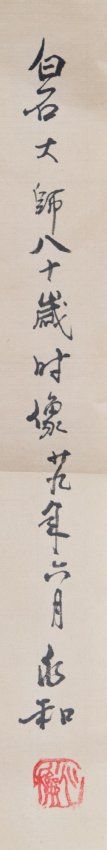 白石大師八十歲时像廿九年六月永和